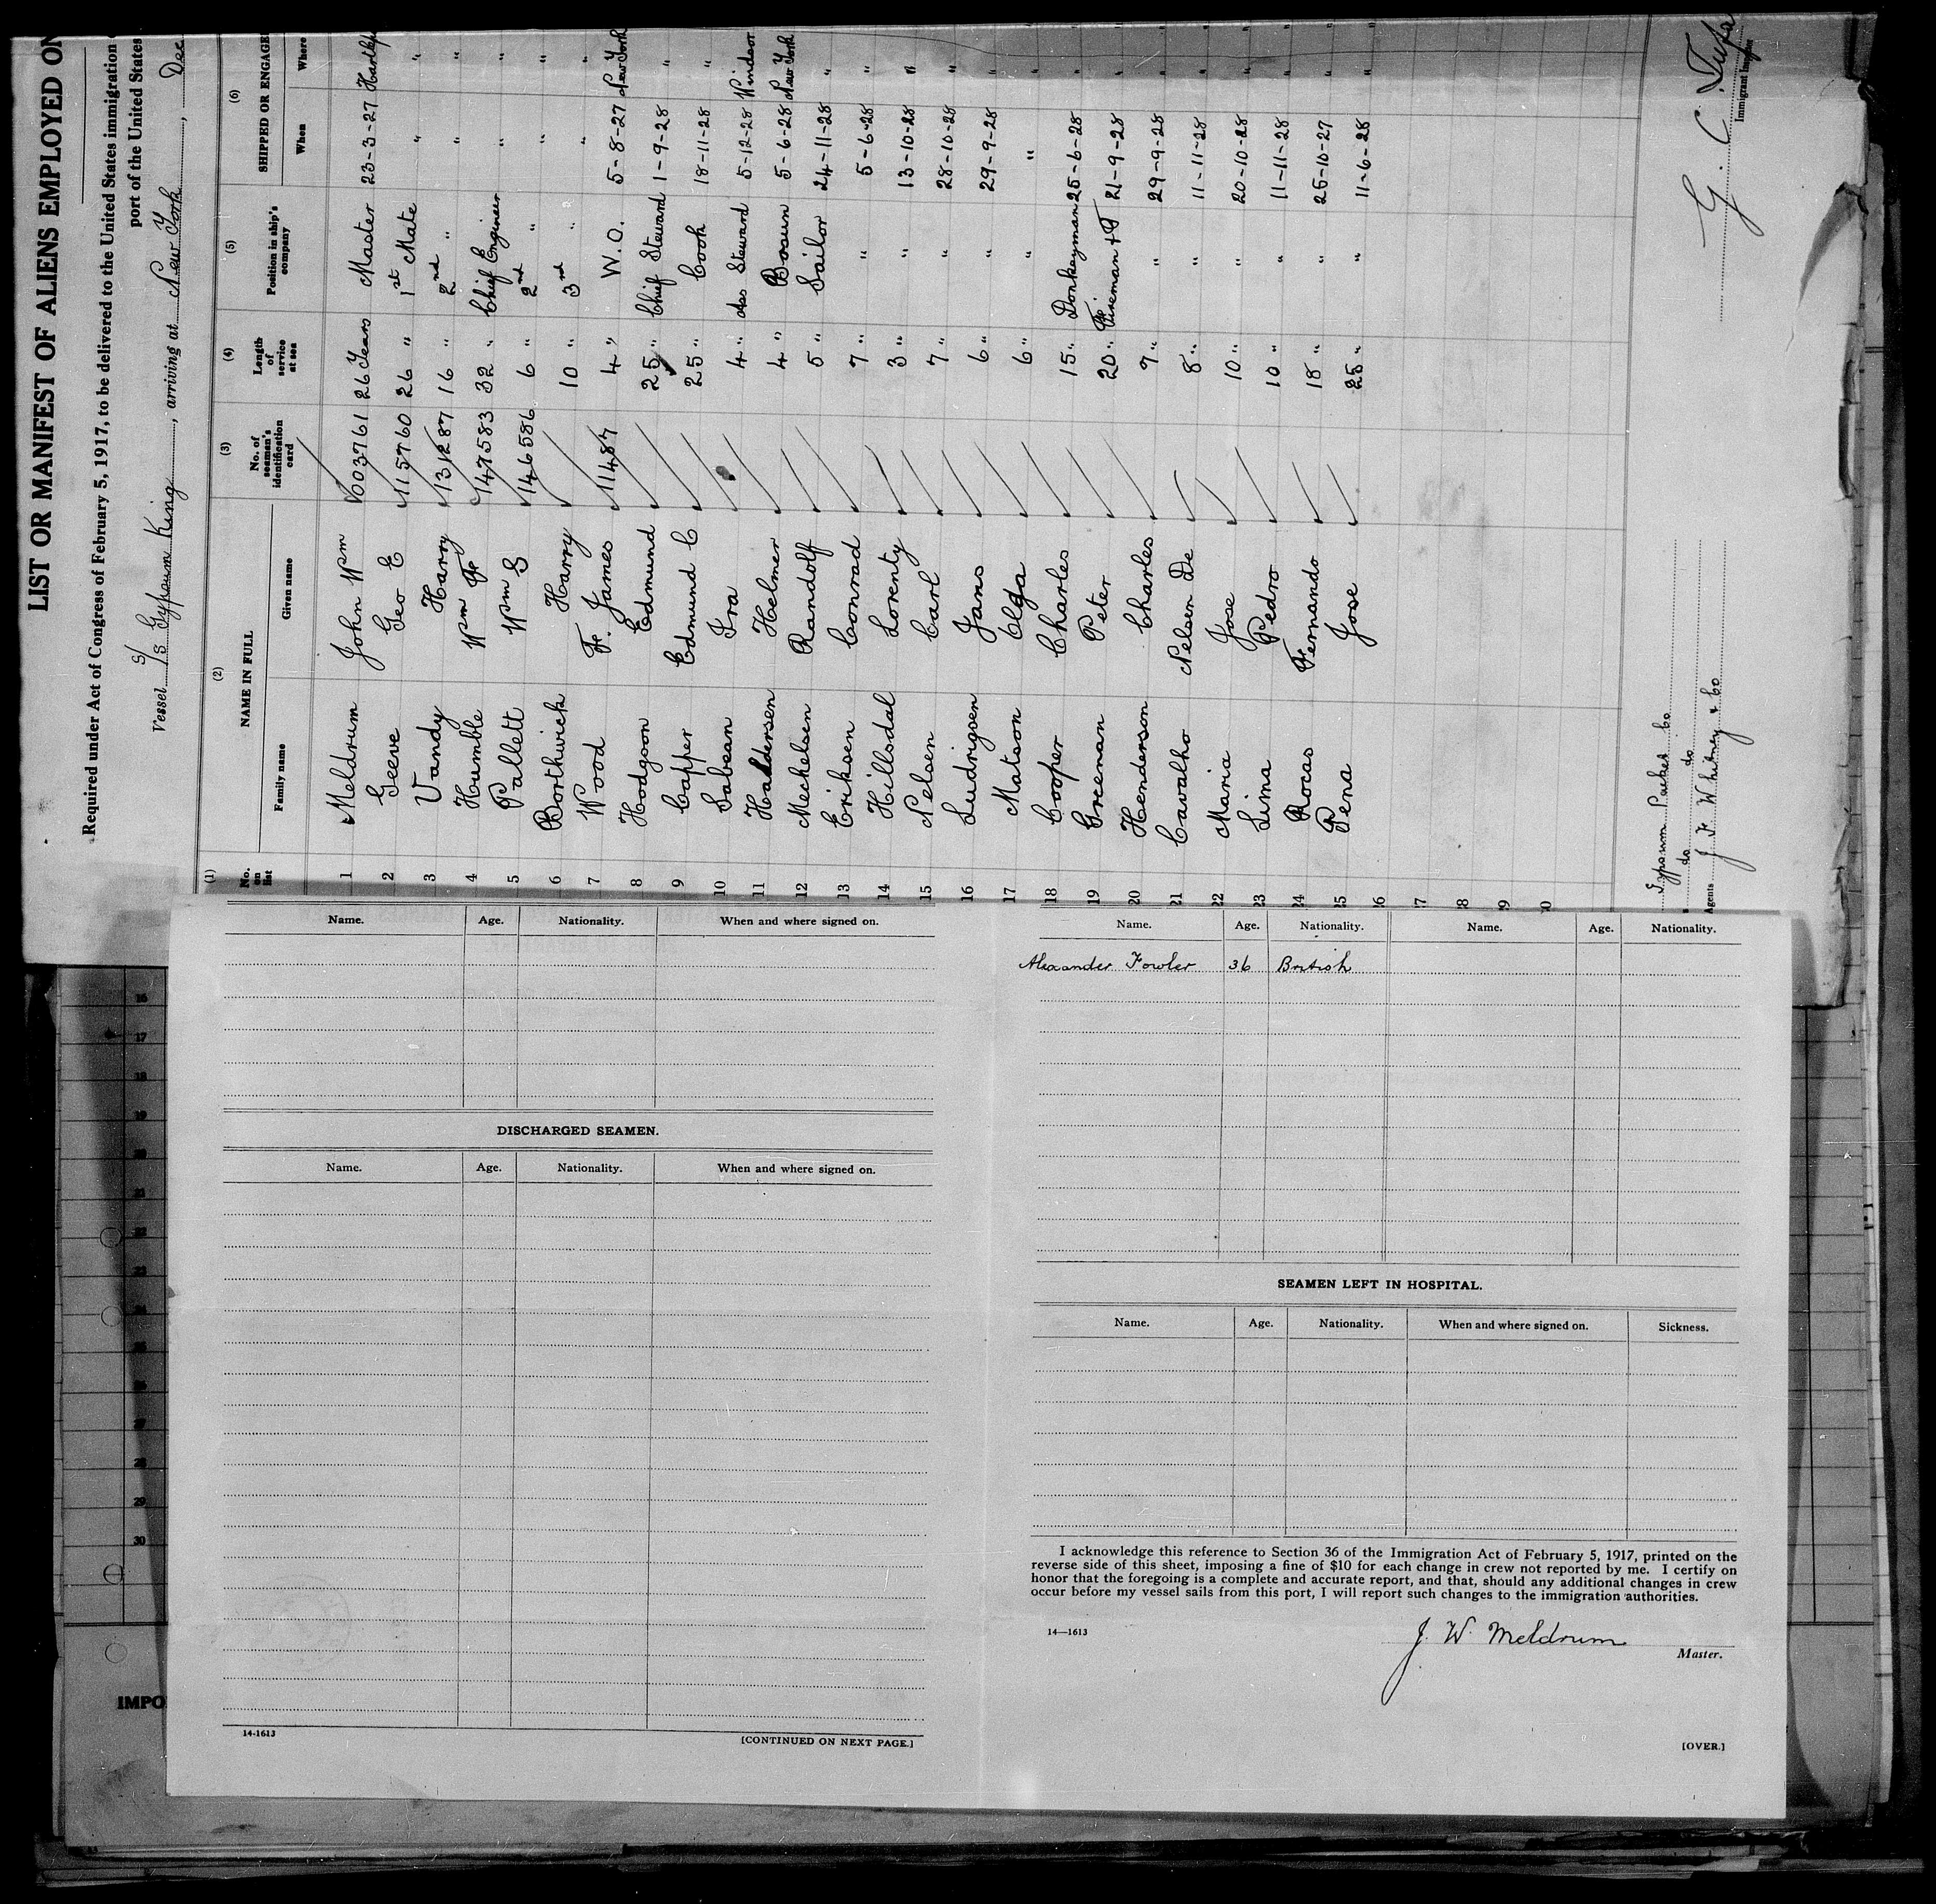 LIST OR MANIFEST OF ALIENS EMPLOYED ON
Required under Act of Congress of February 5, 1917, to be delivered to the United States immigration
port of the United States
Vessel S/s Gypsum King, arriving at New York, Dec
(1) (2) (3) (4) (5) (6)
No. on list NAME IN FULL No. of seaman's identification card Length of service at sea Position in ship's company SHIPPED OR ENGAGED
Family name Given name When Where
1 Meldrum John Wm 003761 26 Years Master 23-3-27
2 Geeve Geo E 115760 26 " 1st Mate " "
3 Vandy Harry 131287 16 " 2nd " " "
4 Humble Wm F 147583 32 " Chief Engineer " "
5 Pallett Wm S 146586 6 " 2nd " " "
6 Borthwick Harry 10 " 3rd " " "
7 Wood F. James 11487 4 " W.O. 5-8-27 New York
8 Hodgson Edmund 25 " Chief Steward 1-9-28 "
9 Capper Edmund C 25 " Cook 18-11-28 "
10 Sabean Ira 4 " Ass Steward 5-12-28 Windsor
11 Haldersen Helmer 4 " Bosun 5-6-28 New York
12 Mechelsen Randolf 5 " Sailor 24-11-28 "
13 Eriksen Conrad 7 " " 5-6-28 "
14 Hillsdal Lorenty 3 " " 13-10-28 "
15 Nelsen Carl 7 " " 28-10-28 "
16 Ludrigsen Jans 6 " " 29-9-28 "
17 Matson 6 " " " "
18 Cooper Charles 15 " Donkeyman 25-6-28 "
19 Greenan Peter 20 " Fireman + T 21-9-28 "
20 Henderson Charles 9 " " 29-9-28 "
21 Cavalho Nelsen De 8 " " 11-11-28 "
22 Maria Jose 10 " " 20-10-28 "
23 Lima Pedro 10 " " 11-11-28 "
24 Rocas Fernando 18 " " 25-10-27 "
25 Pena Jose 25 " " 11-6-28 "
26
27
28
29
30
Gypsum Packet Co
do do
Agents J. F. Whitney & Co
G. C.
Immigrant Inspector
Name. Age. Nationality. When and where signed on.
DISCHARGED SEAMEN.
Name. Age. Nationality. When and where signed on.
14-1613
[CONTINUED ON NEXT PAGE.]
Name. Age. Nationality. Name. Age. Nationality.
Alexander Fowler 36 British
SEAMEN LEFT IN HOSPITAL.
Name. Age. Nationality. When and where signed on. Sickness.
I acknowledge this reference to Section 36 of the Immigration Act of February 5, 1917, printed on the
reverse side of this sheet, imposing a fine of $10 for each change in crew not reported by me. I certify on
honor that the foregoing is a complete and accurate report, and that, should any additional changes in crew
occur before my vessel sails from this port, I will report such changes to the immigration authorities.
14—1613
J. W. Meldrum
Master.
[OVER.]
16
17
18
19
20
21
22
23
24
25
26
27
28
29
30
IMPO